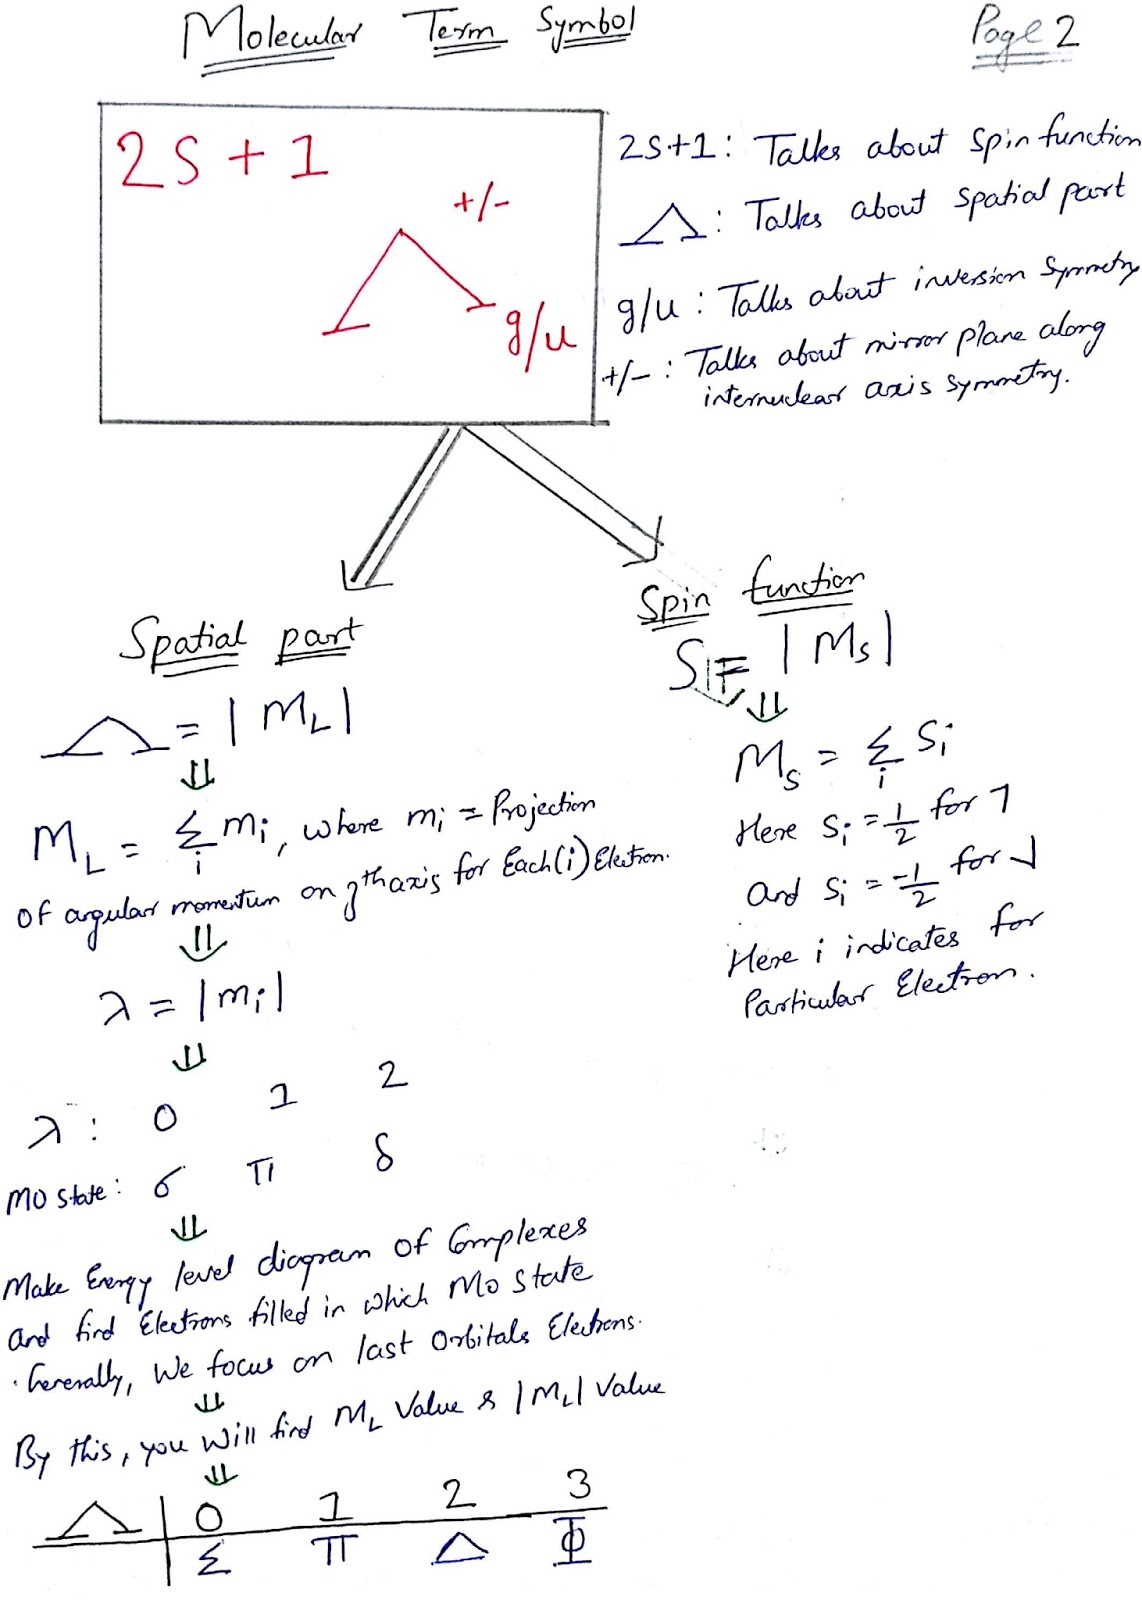 Molecular Term Symbol
Page 2
2S + 1
+/-
Λ
g/u
2S+1: Talks about Spin function
Λ: Talks about spatial part
g/u: Talks about inversion Symmetry
+/-: Talks about mirror plane along
internuclear axis symmetry.
Spatial part
Λ = |ML|
⇓
ML = Σi mi, where mi = Projection
of angular momentum on zth axis for Each(i) Electron.
⇓
λ = |mi|
⇓
λ: 0 1 2
MO state: σ π δ
⇓
Make Energy level diagram of Complexes
and find Electrons filled in which MO State
. Generally, We focus on last Orbitals Electrons.
⇓
By this, you will find ML Value & |ML| Value
⇓
Λ | 0 1 2 3
Σ Π Δ Φ
Spin function
S = |Ms|
⇓
Ms = Σi Si
Here Si = 1/2 for 1
And Si = -1/2 for ↓
Here i indicates for
Particular Electron.